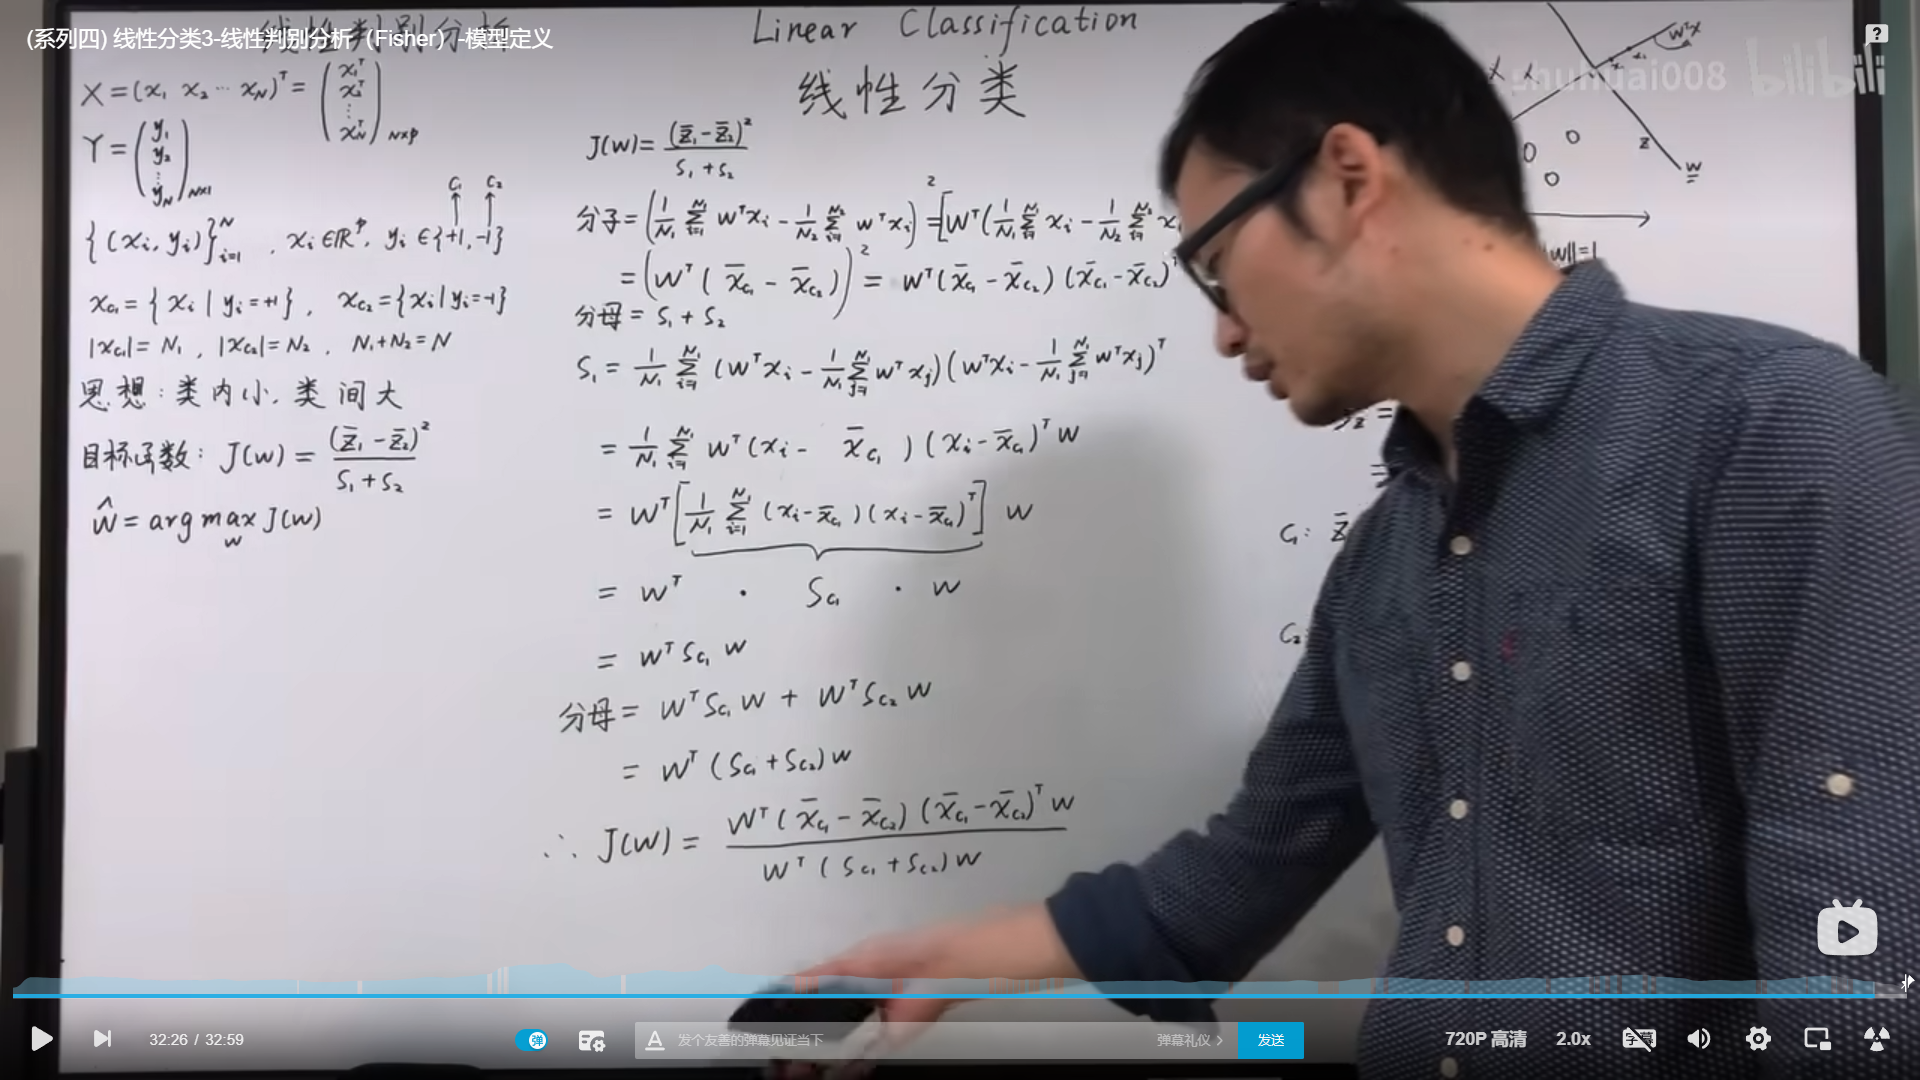 (系列四) 线性分类3-线性判别分析（Fisher）-模型定义
Linear Classification
线性分类
shuhuai008 bilibili
X = (x₁ x₂ ⋯ x_N)ᵀ = (x₁ᵀ x₂ᵀ ⋮ x_Nᵀ)_{N×p}
Y = (y₁ y₂ ⋮ y_N)_{N×1}
C₁ C₂
{(xᵢ, yᵢ)}ᵢ₌₁ᴺ , xᵢ ∈ ℝᵖ, yᵢ ∈ {+1, -1}
x_{c₁} = {xᵢ | yᵢ = +1} , x_{c₂} = {xᵢ | yᵢ = -1}
|x_{c₁}| = N₁ , |x_{c₂}| = N₂ , N₁ + N₂ = N
思想: 类内小, 类间大
目标函数: J(w) = (z̄₁ - z̄₂)² / (S₁ + S₂)
ŵ = arg max_w J(w)
J(w) = (z̄₁ - z̄₂)² / (S₁ + S₂)
分子 = (1/N₁ Σᵢ₌₁^{N₁} wᵀxᵢ - 1/N₂ Σᵢ₌₁^{N₂} wᵀxᵢ)² = [wᵀ(1/N₁ Σᵢ₌₁^{N₁} xᵢ - 1/N₂ Σᵢ₌₁^{N₂} x
= (wᵀ(x̄_{c₁} - x̄_{c₂}))² = wᵀ(x̄_{c₁} - x̄_{c₂})(x̄_{c₁} - x̄_{c₂})ᵀ
分母 = S₁ + S₂
S₁ = 1/N₁ Σᵢ₌₁^{N₁} (wᵀxᵢ - 1/N₁ Σⱼ₌₁^{N₁} wᵀxⱼ)(wᵀxᵢ - 1/N₁ Σⱼ₌₁^{N₁} wᵀxⱼ)ᵀ
= 1/N₁ Σᵢ₌₁^{N₁} wᵀ(xᵢ - x̄_{c₁})(xᵢ - x̄_{c₁})ᵀw
= wᵀ[1/N₁ Σᵢ₌₁^{N₁} (xᵢ - x̄_{c₁})(xᵢ - x̄_{c₁})ᵀ] w
= wᵀ · S_{c₁} · w
= wᵀ S_{c₁} w
分母 = wᵀS_{c₁}w + wᵀS_{c₂}w
= wᵀ(S_{c₁} + S_{c₂})w
∴ J(w) = wᵀ(x̄_{c₁} - x̄_{c₂})(x̄_{c₁} - x̄_{c₂})ᵀw / wᵀ(S_{c₁} + S_{c₂})w
wᵀx
z
w
w||=1
C₁: z̄
C₂:
32:26 / 32:59
弹
发个友善的弹幕见证当下
弹幕礼仪 >
发送
720P 高清
2.0x
字幕